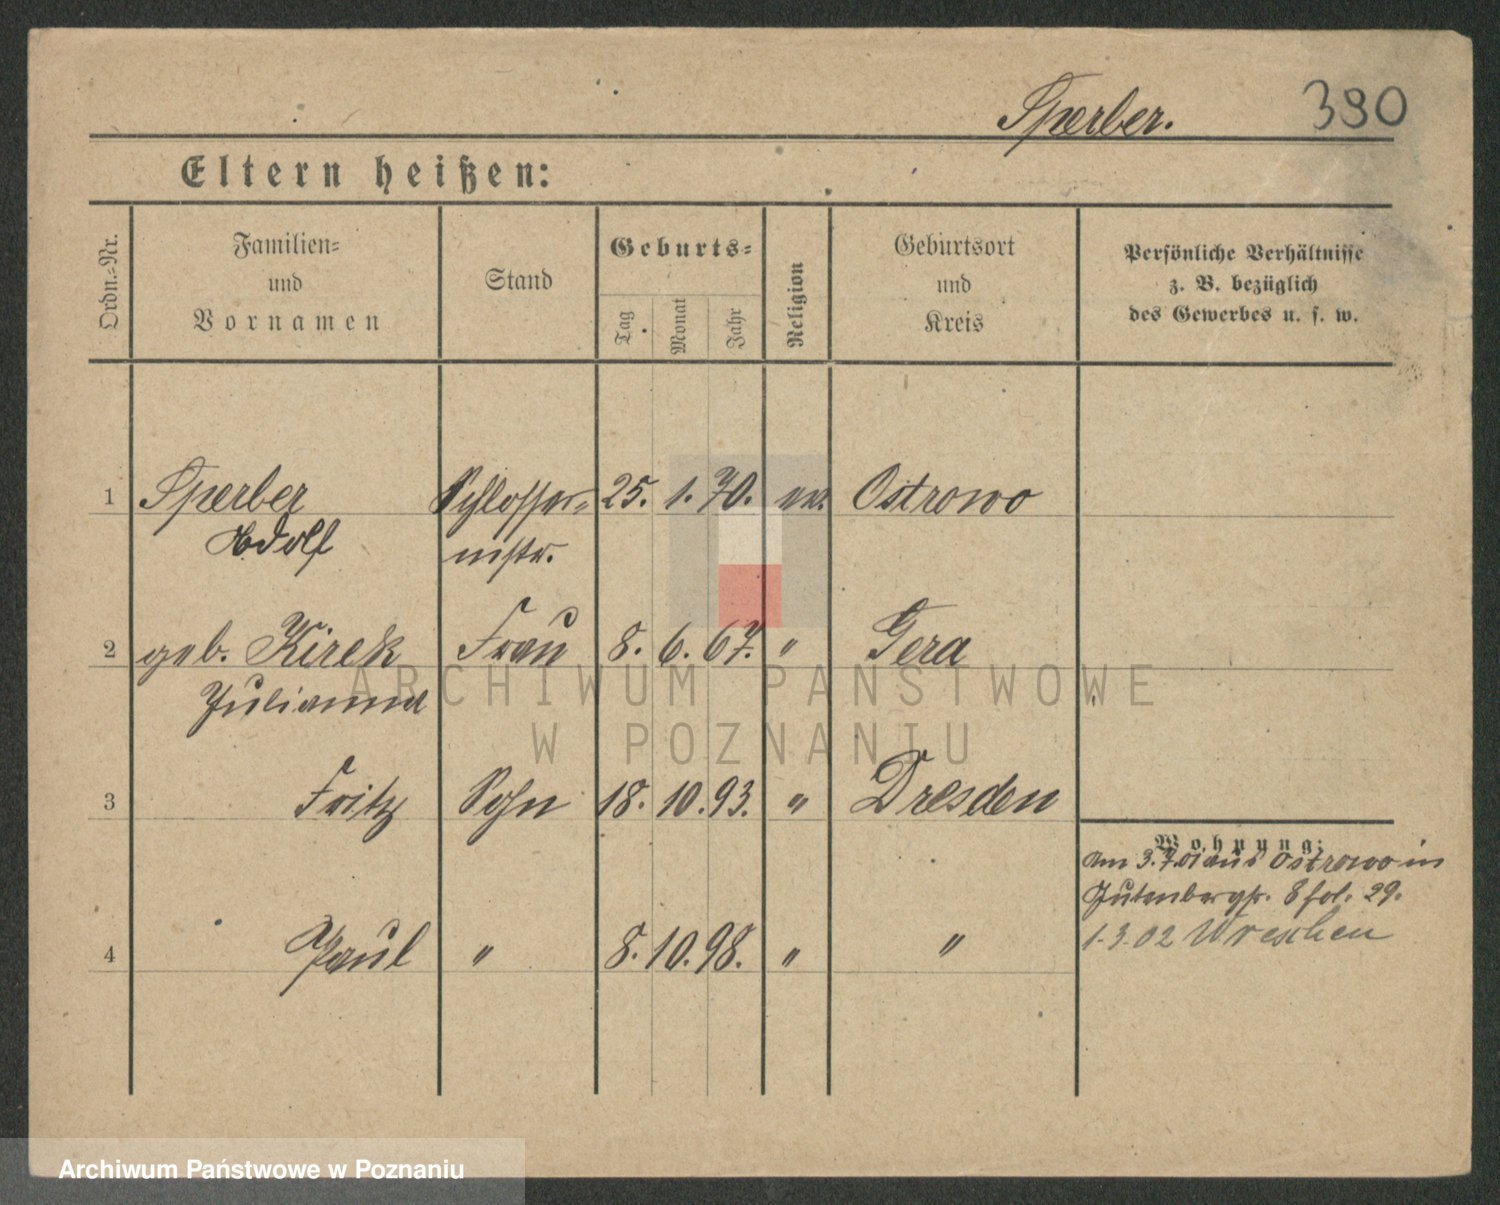 Sperber. 390
Eltern heißen:
Ordn.-Nr.
Familien-
und
Vornamen
Stand
Geburts-
Tag
Monat
Jahr
Religion
Geburtsort
und
Kreis
Persönliche Verhältnisse
z. B. bezüglich
des Gewerbes u. s. w.
1 Sperber Schlosser- 25. 1. 70. ev. Ostrowo
Adolf mstr.
2 geb. Kirek Frau 8. 6. 67. " Gera
Julianna
3 Fritz Sohn 18. 10. 93. " Dresden
Wohnung:
Am 3.7.01 aus Ostrowo in
Gutenbergstr. 8 fol. 29.
1.3.02 Wreschen
4 Paul " 8. 10. 98. " "
ARCHIWUM PAŃSTWOWE
W POZNANIU
Archiwum Państwowe w Poznaniu